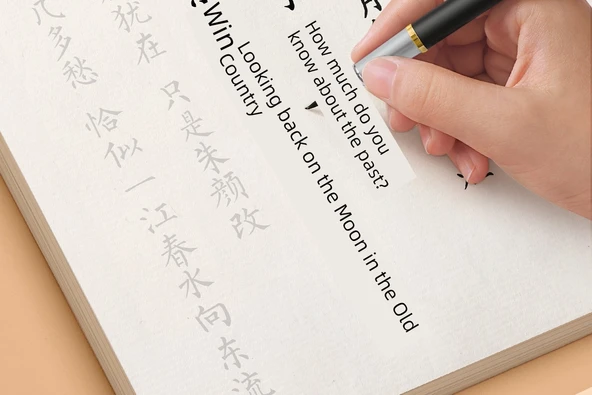 How much do you
know about the past?
Win
Looking back on the Moon in the Old
Country
犹在 只是朱颜改
几多愁 恰似一江春水向东流